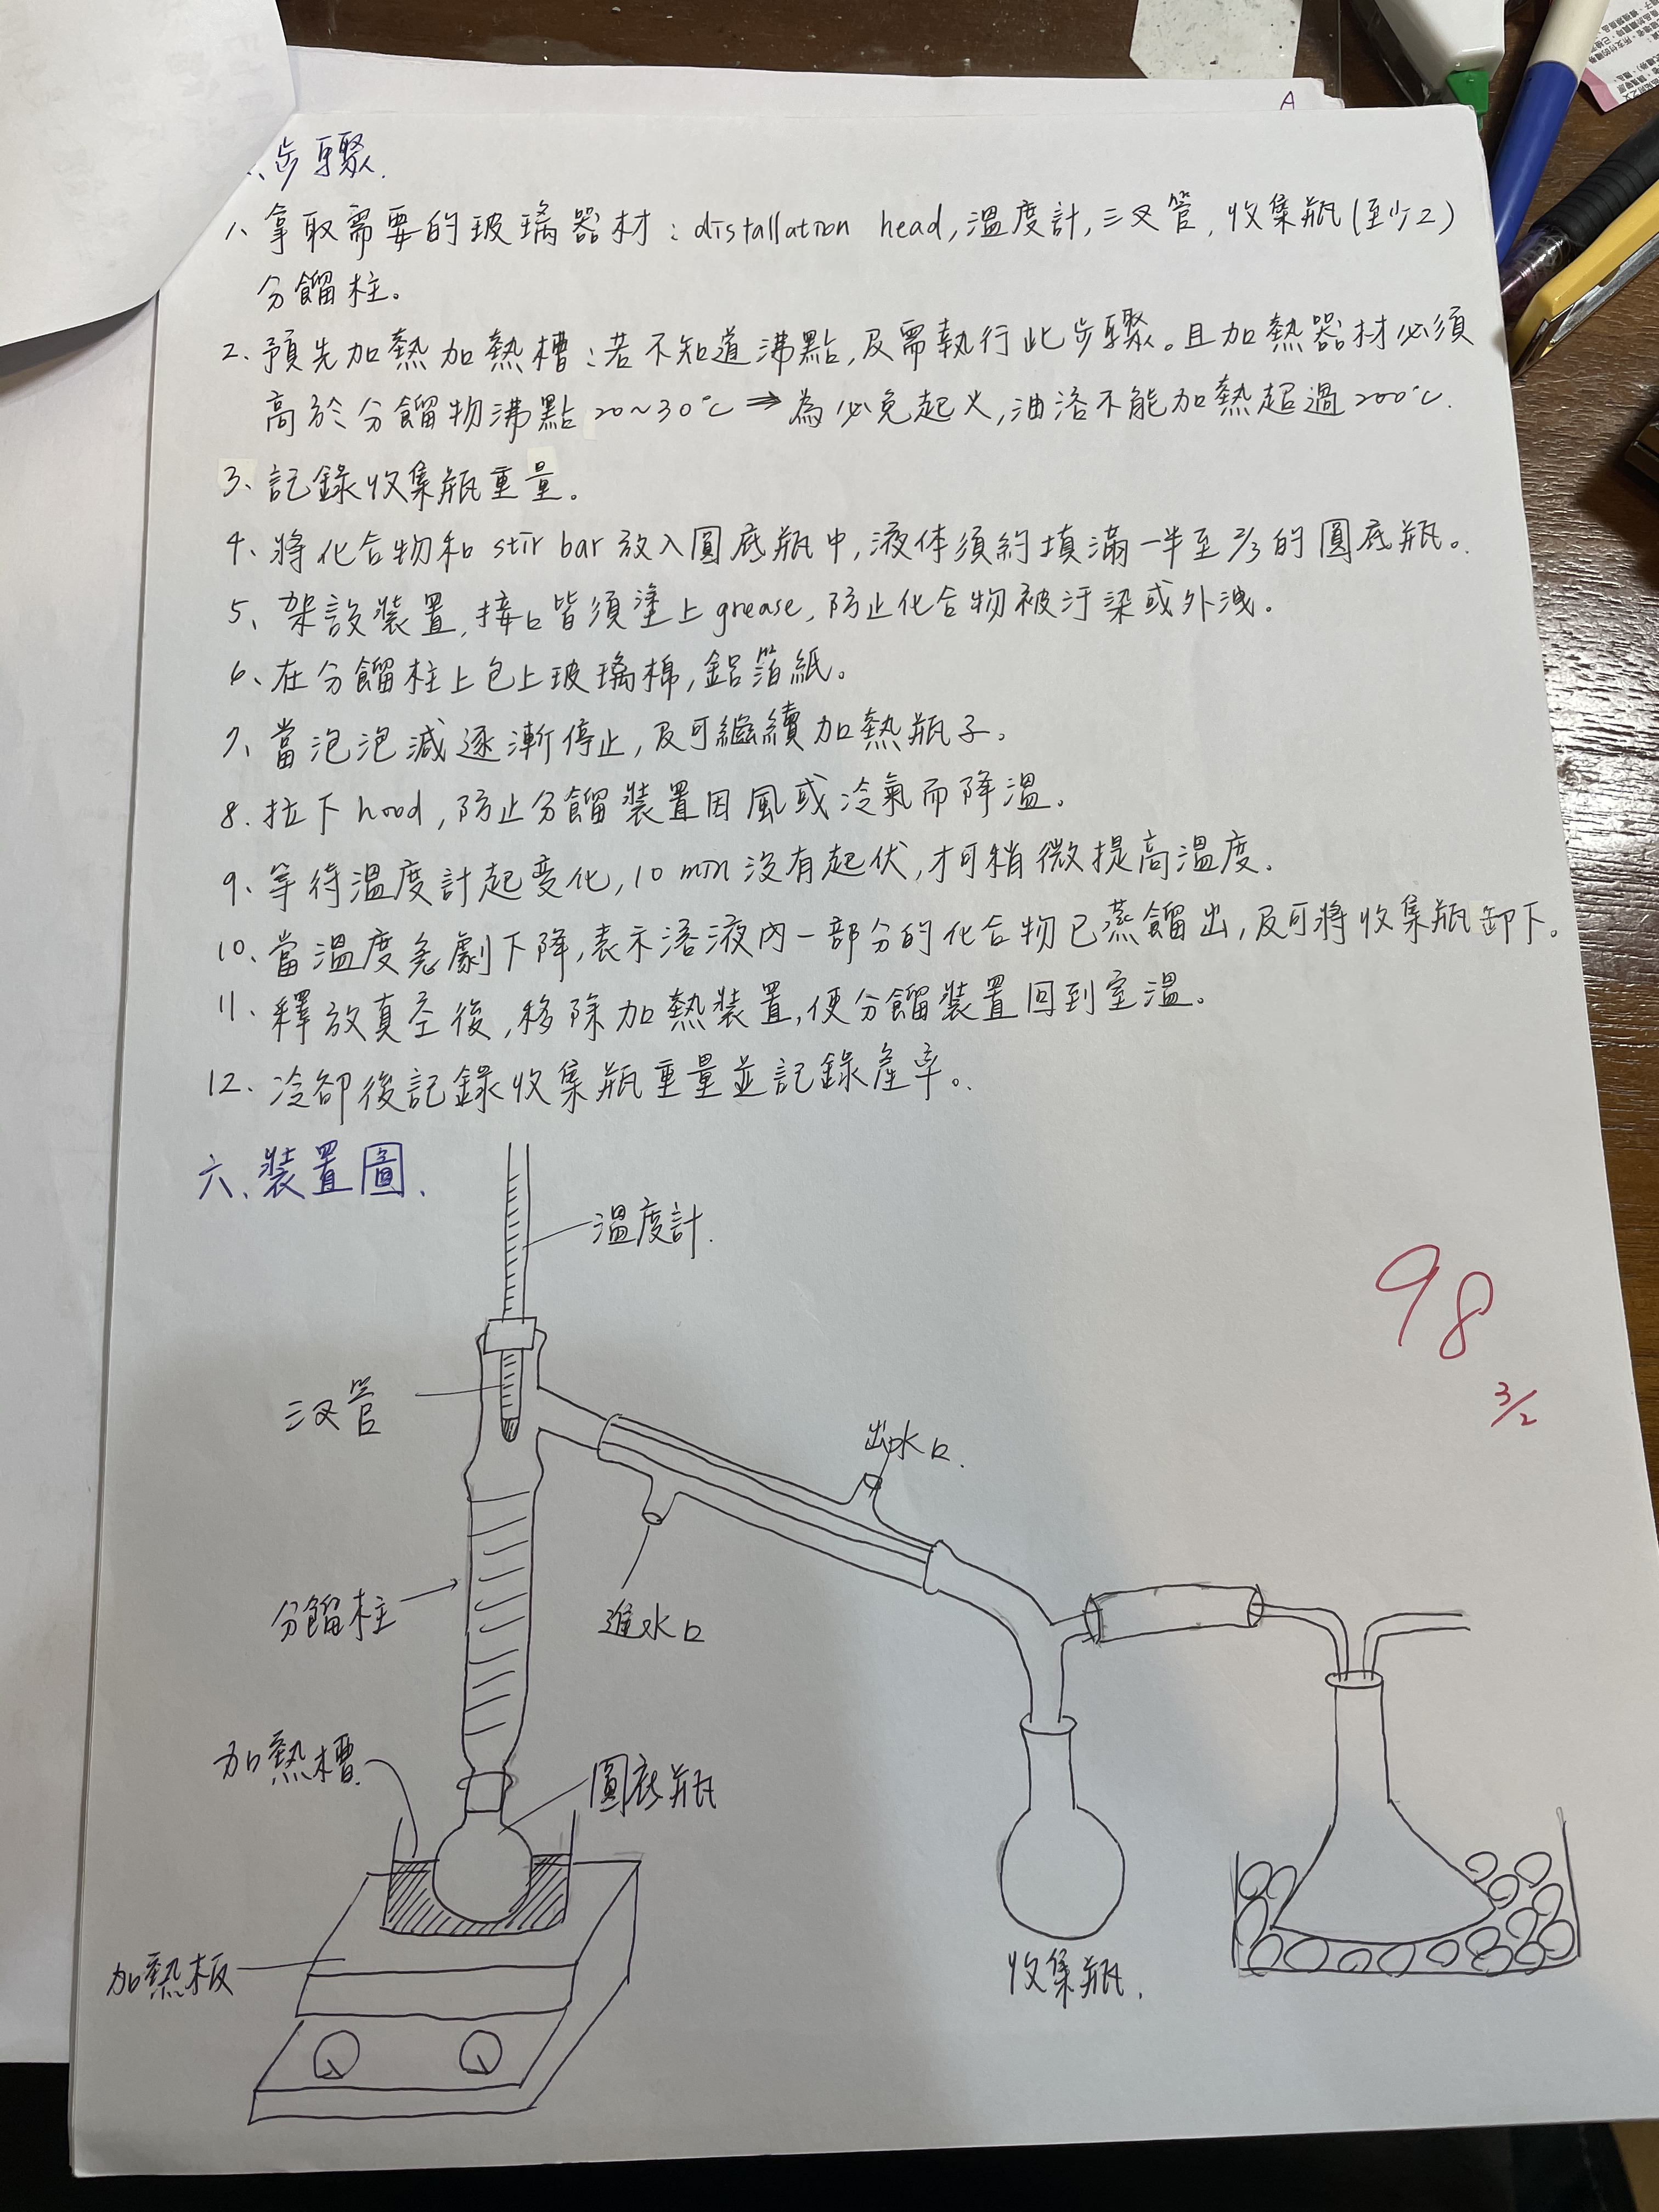 A
、步驟.
1、拿取需要的玻璃器材：distallation head,溫度計,三叉管,收集瓶(至少2)
分餾柱。
2、預先加熱加熱槽:若不知道沸點,及需執行此步驟。且加熱器材必須
高於分餾物沸點20~30℃⇒為必免起火,油浴不能加熱超過200℃.
3、記錄收集瓶重量。
4、將化合物和stir bar放入圓底瓶中,液体須約填滿一半至2/3的圓底瓶。
5、架設裝置,接口皆須塗上grease,防止化合物被汙染或外洩。
6、在分餾柱上包上玻璃棉,鋁箔紙。
7、當泡泡減逐漸停止,及可繼續加熱瓶子。
8、拉下hood,防止分餾裝置因風或冷氣而降溫。
9、等待溫度計起变化,10 min沒有起伏,才可稍微提高溫度.
10、當溫度急劇下降,表示溶液內一部分的化合物已蒸餾出,及可將收集瓶卸下。
11、釋放真空後,移除加熱裝置,使分餾裝置回到室溫。
12、冷卻後記錄收集瓶重量並記錄產率。
六、裝置圖.
溫度計.
98
3/2
三叉管
出水口.
分餾柱
進水口
加熱槽
圓底瓶
加熱板
收集瓶.